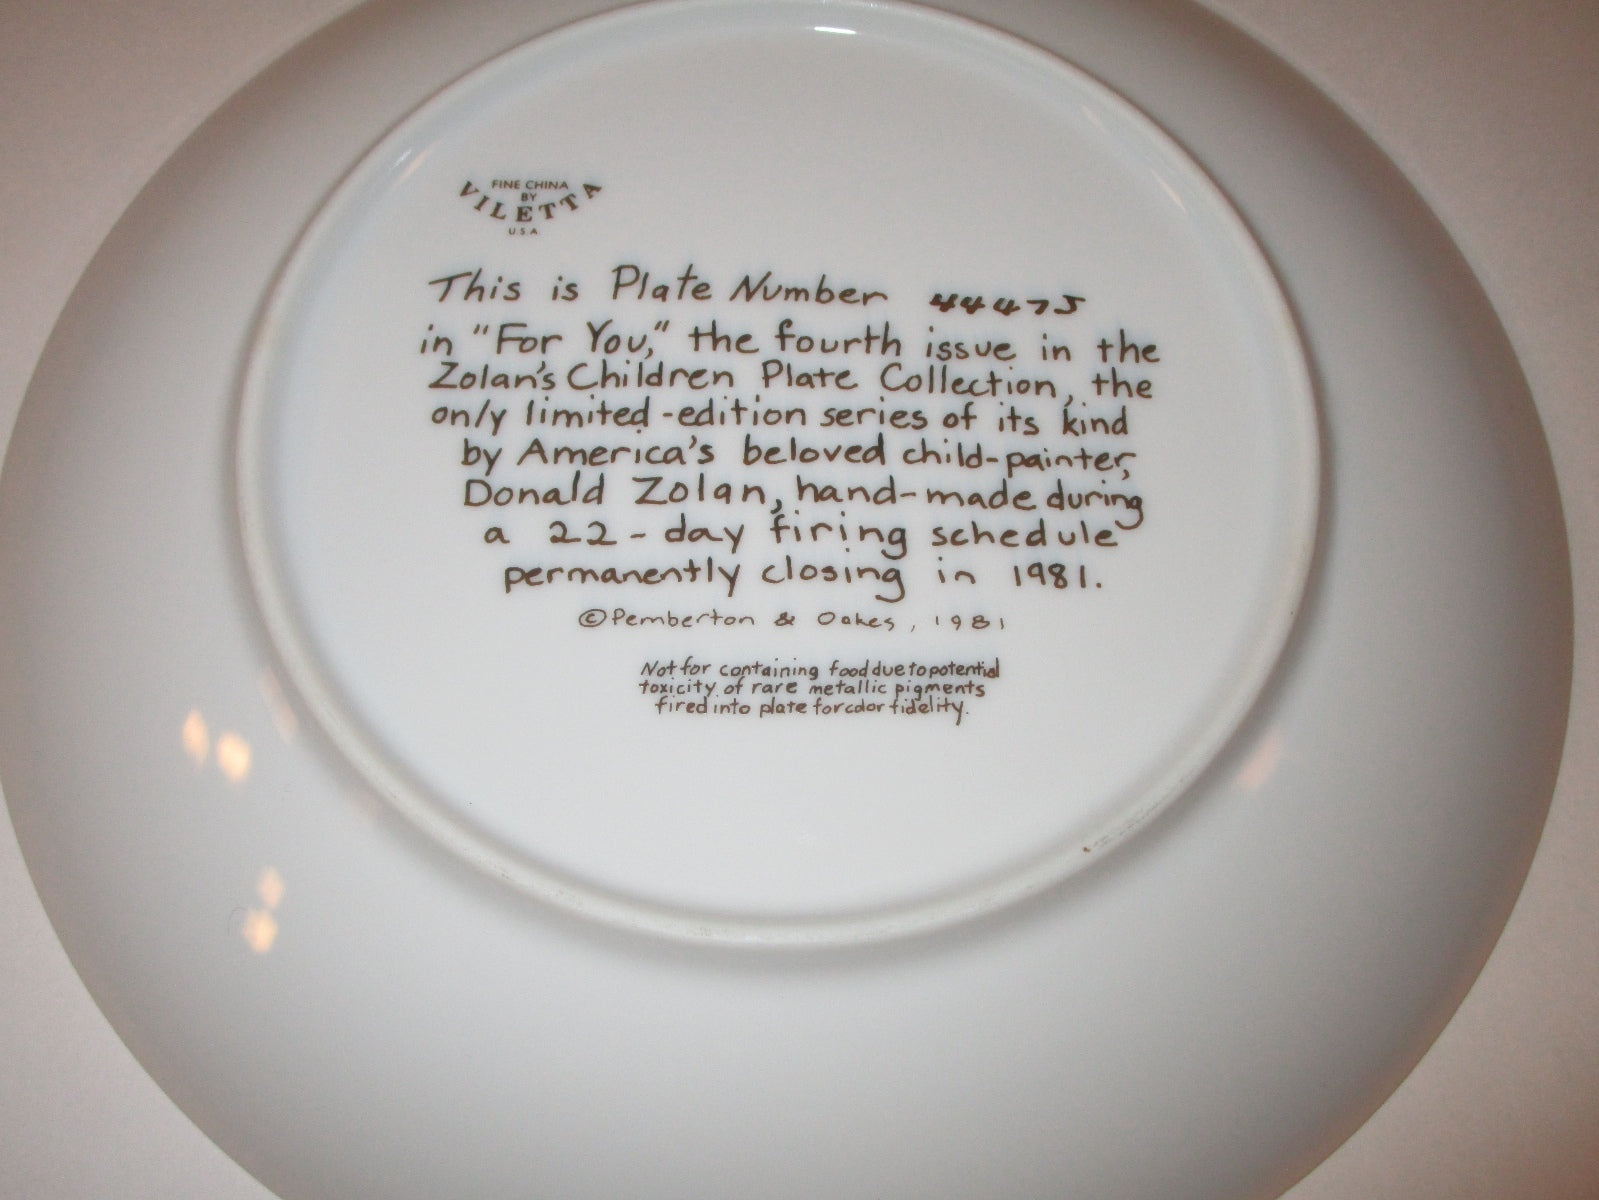 FINE CHINA
BY
VILETTA
USA
This is Plate Number 44475
in "For You," the fourth issue in the
Zolan's Children Plate Collection, the
only limited-edition series of its kind
by America's beloved child-painter,
Donald Zolan, hand-made during
a 22-day firing schedule
permanently closing in 1981.
© Pemberton & Oakes, 1981
Not for containing food due to potential
toxicity of rare metallic pigments
fired into plate for color fidelity.